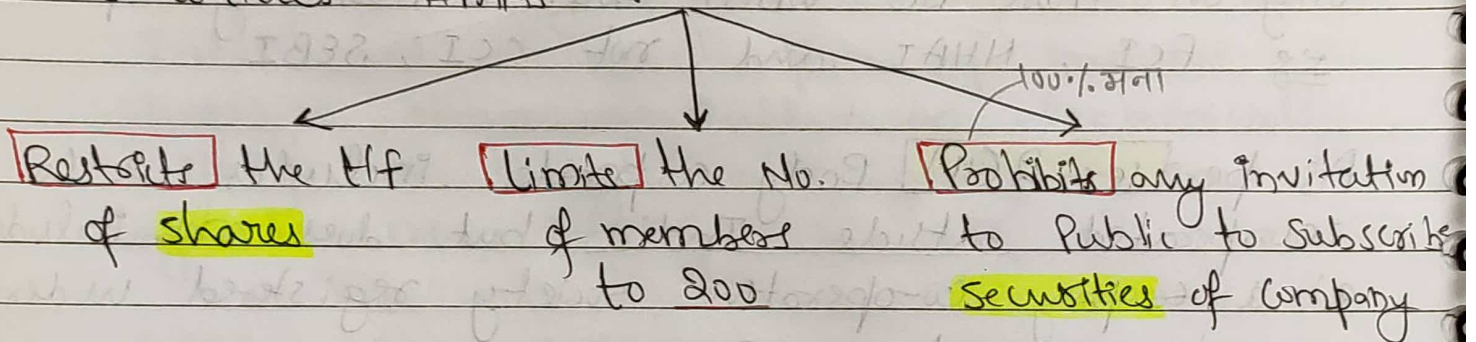 100% मना
Restricts the t/f
of shares
Limits the No.
of members
to 200
Prohibits any invitation
to Public to subscribe
securities of company